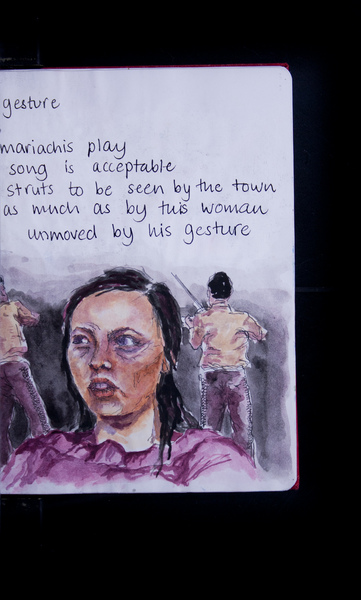 gesture
mariachis play
song is acceptable
struts to be seen by the town
as much as by this woman
unmoved by his gesture